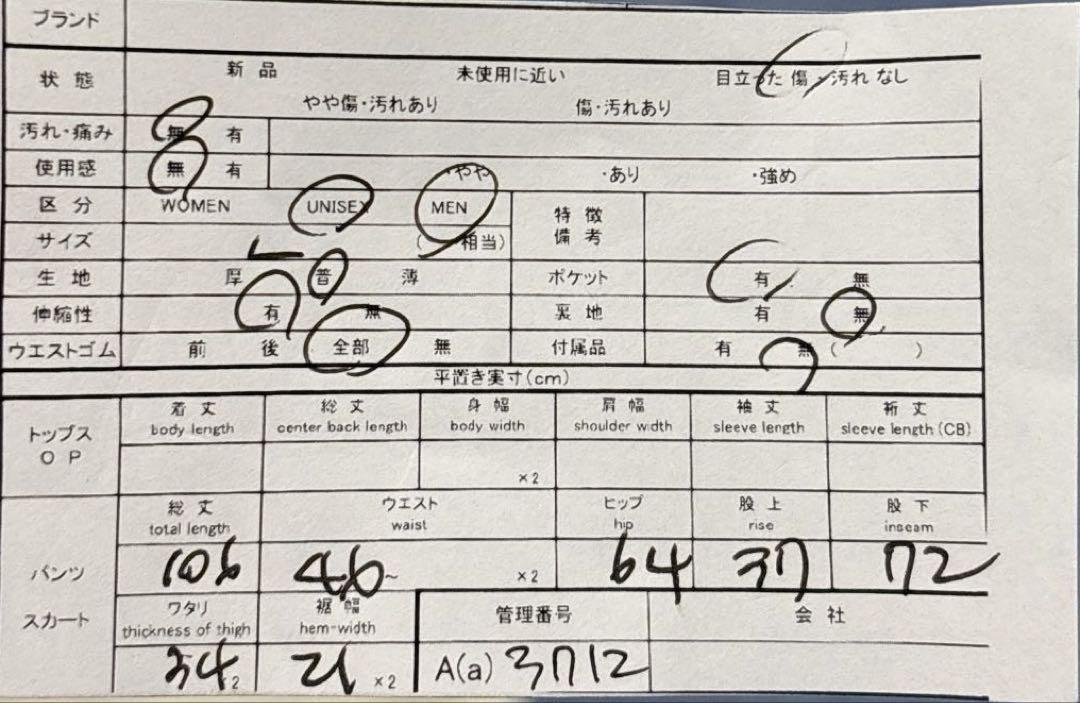 ブランド
状態 新品 未使用に近い 目立った 傷・汚れ なし
やや傷・汚れあり 傷・汚れあり
汚れ・痛み 無 有
使用感 無 有 ・やや ・あり ・強め
区分 WOMEN UNISEX MEN 特徴
サイズ L ( 相当) 備考
生地 厚 普 薄 ポケット 有 無
伸縮性 有 無 裏地 有 無
ウエストゴム 前 後 全部 無 付属品 有 無 ( )
平置き実寸(cm)
着丈 総丈 身幅 肩幅 袖丈 裄丈
body length center back length body width shoulder width sleeve length sleeve length (CB)
トップス
OP
×2
総丈 ウエスト ヒップ 股上 股下
total length waist hip rise inseam
パンツ 106 46~ ×2 64 37 72
スカート ワタリ 裾幅 管理番号 会社
thickness of thigh hem-width
34 2 21 ×2 A(a) 3712